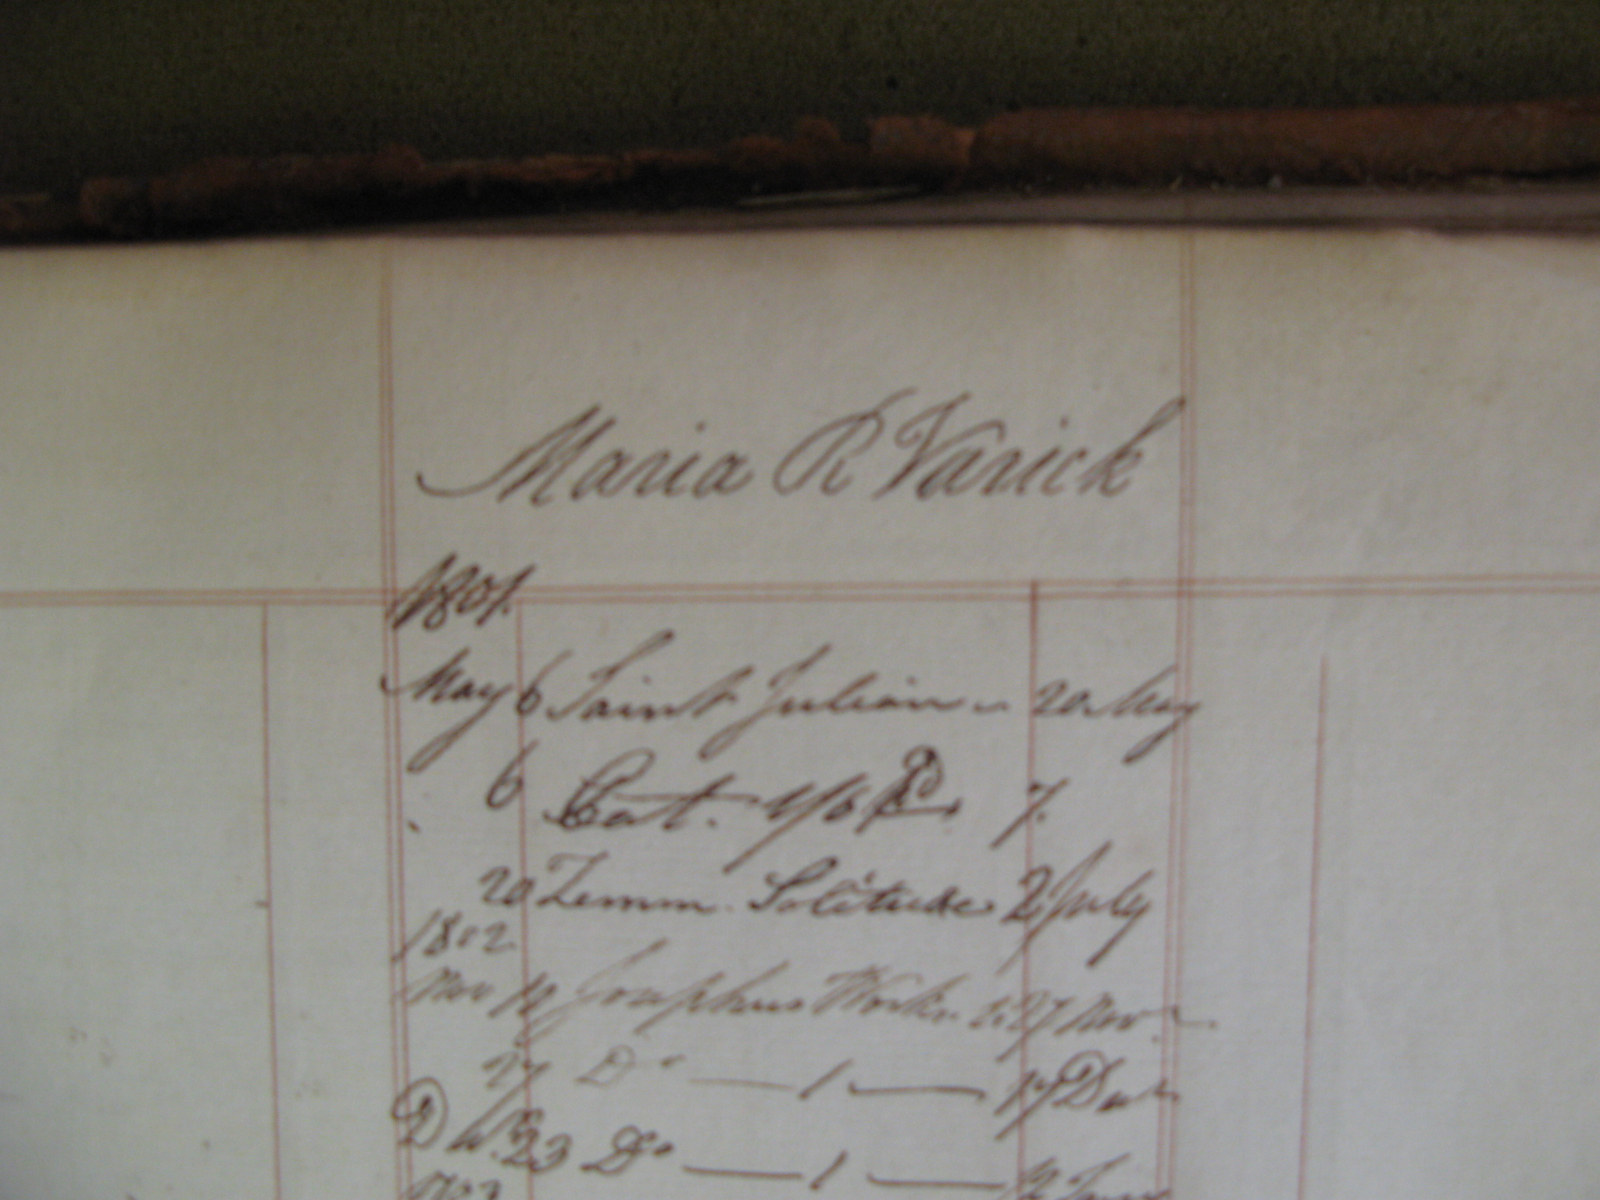 Maria R Varick
1801.
May 6 Saint Julian 20 May
6 Cat. 4/6 Pd. 7.
20 Zimm. Solitude 2 July
1802
Nov 19 Josephus Works 27 Nov
27 Do — 1 — 17 Dec
23 Do — 1 —
1803